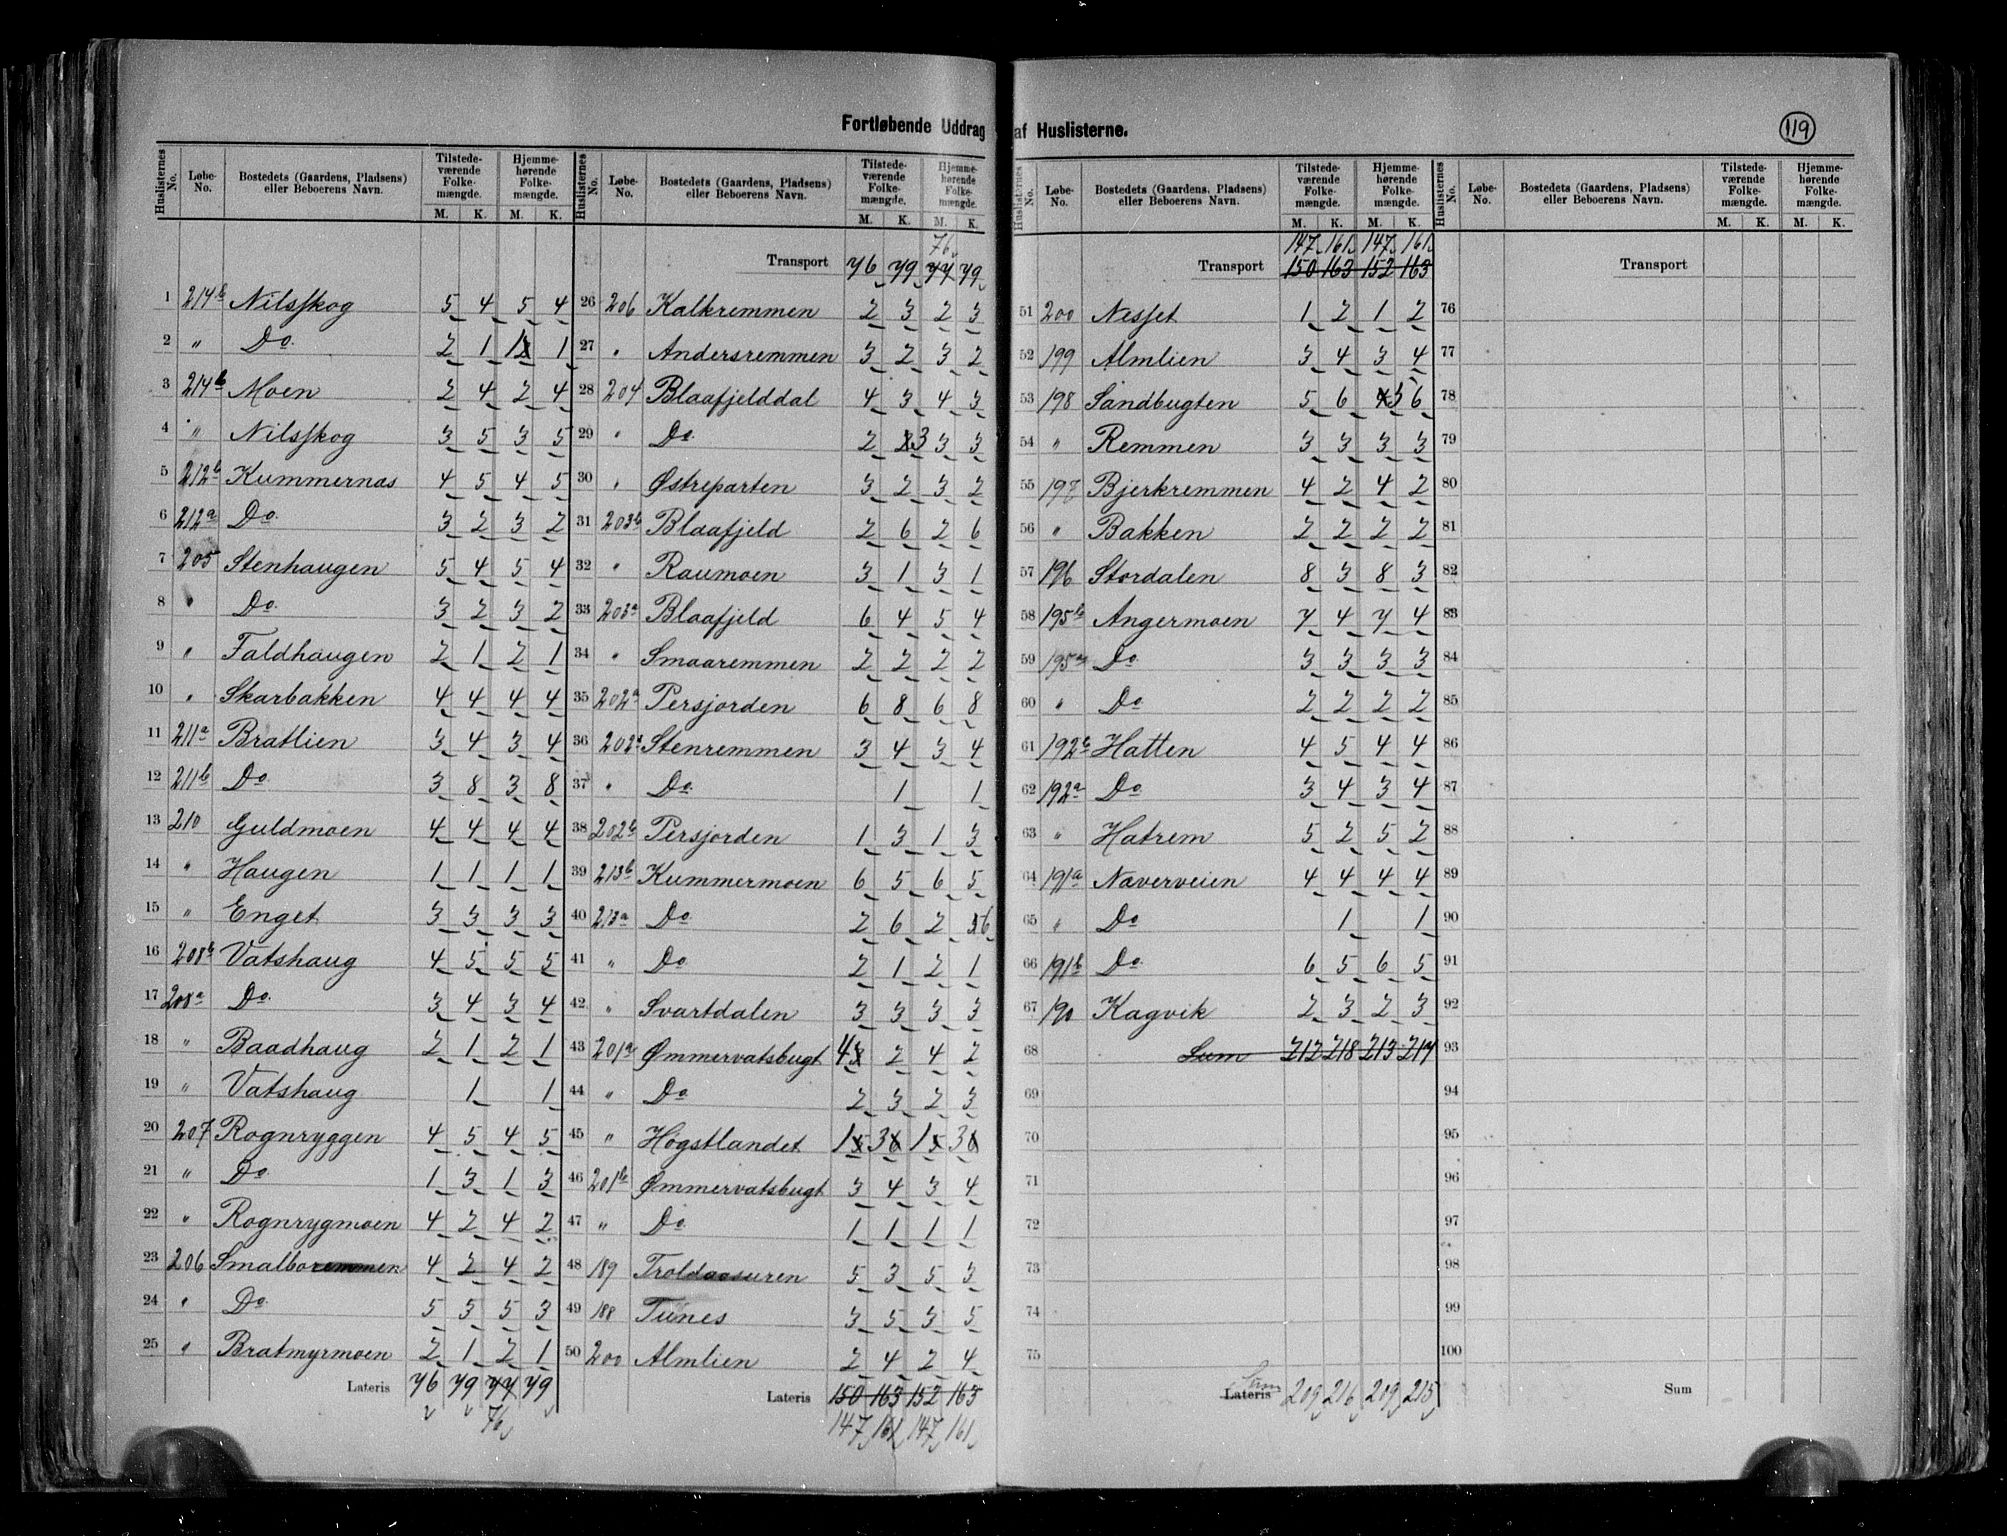 Fortløbende Uddrag af Huslisterne.
119
Huslisternes No. Løbe-No. Bostedets (Gaardens, Pladsens) eller Beboerens Navn. Tilstedeværende Folkemængde. Hjemmehørende Folkemængde.
M. K. M. K.
1 214b Nilsskog 5 4 5 4
2 " Do 2 1 1 1
3 214b Moen 2 4 2 4
4 " Nilsskog 3 5 3 5
5 212b Kummernas 4 5 4 5
6 212a Do 3 2 3 2
7 205 Stenhaugen 5 4 5 4
8 " Do 3 2 3 2
9 " Faldhaugen 2 1 2 1
10 " Skarbakken 4 4 4 4
11 211a Bratlien 3 4 3 4
12 211b Do 3 8 3 8
13 210 Guldmoen 4 4 4 4
14 " Haugen 1 1 1 1
15 " Enget 3 3 3 3
16 208b Vatshaug 4 5 5 5
17 208a Do 3 4 3 4
18 " Baadhaug 2 1 2 1
19 " Vatshaug 1 1
20 207 Rognryggen 4 5 4 5
21 " Do 1 3 1 3
22 " Rognrygmoen 4 2 4 2
23 206 Smalboremmen 4 2 4 2
24 " Do 5 3 5 3
25 " Bratmyrmoen 2 1 2 1
Lateris 76 79 77 79
76
Huslisternes No. Løbe-No. Bostedets (Gaardens, Pladsens) eller Beboerens Navn. Tilstedeværende Folkemængde. Hjemmehørende Folkemængde.
M. K. M. K.
76
Transport 76 79 77 79
26 206 Kalkremmen 2 3 2 3
27 " Andersremmen 3 2 3 2
28 204 Blaafjelddal 4 3 4 3
29 " Do 2 3 3 3
30 " Østreparten 3 2 3 2
31 203b Blaafjeld 2 6 2 6
32 " Raumoen 3 1 3 1
33 203a Blaafjeld 6 4 5 4
34 " Smaaremmen 2 2 2 2
35 202a Persjorden 6 8 6 8
36 202a Stenremmen 3 4 3 4
37 " Do 1 1
38 202b Persjorden 1 3 1 3
39 213b Kummermoen 6 5 6 5
40 213a Do 2 6 2 6
41 " Do 2 1 2 1
42 " Svartdalen 3 3 3 3
43 201a Ømmervatsbugt 4 2 4 2
44 " Do 2 3 2 3
45 " Høgstlandet 1 3 1 3
46 201b Ømmervatsbugt 3 4 3 4
47 " Do 1 1 1 1
48 189 Troldaasuren 5 3 5 3
49 188 Tunes 3 5 3 5
50 200 Almlien 2 4 2 4
Lateris 150 163 152 163
147 161 147 161
Huslisternes No. Løbe-No. Bostedets (Gaardens, Pladsens) eller Beboerens Navn. Tilstedeværende Folkemængde. Hjemmehørende Folkemængde.
M. K. M. K.
147 161 147 161
Transport 150 163 152 163
51 200 Nesset 1 2 1 2
52 199 Almlien 3 4 3 4
53 198 Sandbugten 5 6 5 6
54 " Remmen 3 3 3 3
55 197 Bjerkremmen 4 2 4 2
56 " Bakken 2 2 2 2
57 196 Stordalen 8 3 8 3
58 195b Angermoen 7 4 7 4
59 195a Do 3 3 3 3
60 " Do 2 2 2 2
61 192b Hatten 4 5 4 4
62 192a Do 3 4 3 4
63 " Hatrem 5 2 5 2
64 191a Naverveien 4 4 4 4
65 " Do 1 1
66 191b Do 6 5 6 5
67 190 Kagvik 2 3 2 3
68 Sum 212 218 213 217
69
70
71
72
73
74
75
Sum
Lateris 209 216 209 215
Huslisternes No. Løbe-No. Bostedets (Gaardens, Pladsens) eller Beboerens Navn. Tilstedeværende Folkemængde. Hjemmehørende Folkemængde.
M. K. M. K.
Transport
76
77
78
79
80
81
82
83
84
85
86
87
88
89
90
91
92
93
94
95
96
97
98
99
100
Sum